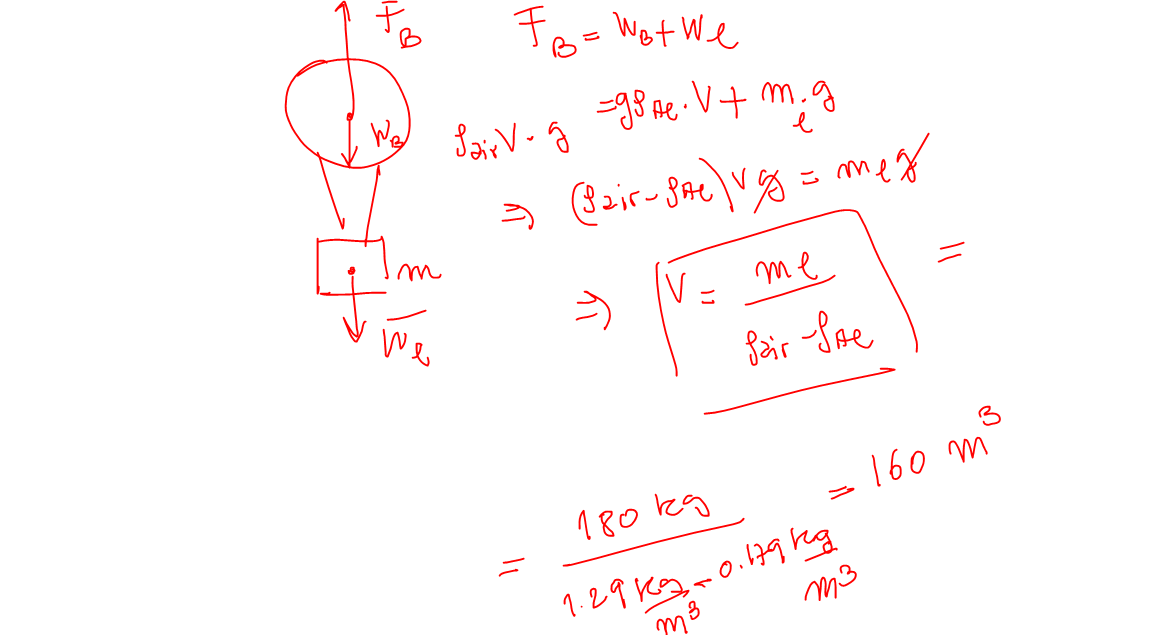 F_B
F_B = W_B + W_ℓ
W_B
ρ_air V · g = g ρ_He · V + m_ℓ · g
⇒ (ρ_air − ρ_He) V g = m_ℓ g
m
W_ℓ
⇒ V = m_ℓ / (ρ_air − ρ_He) =
= 180 kg / (1.29 kg/m³ − 0.179 kg/m³) = 160 m³